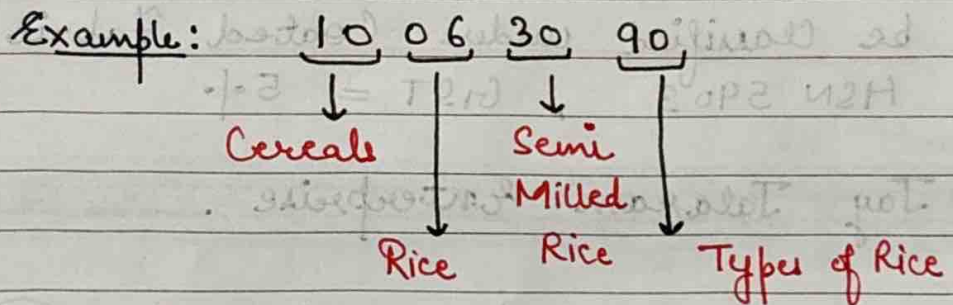 Example: 10 06 30 90
Cereals Semi
Milled
Rice Rice Types of Rice